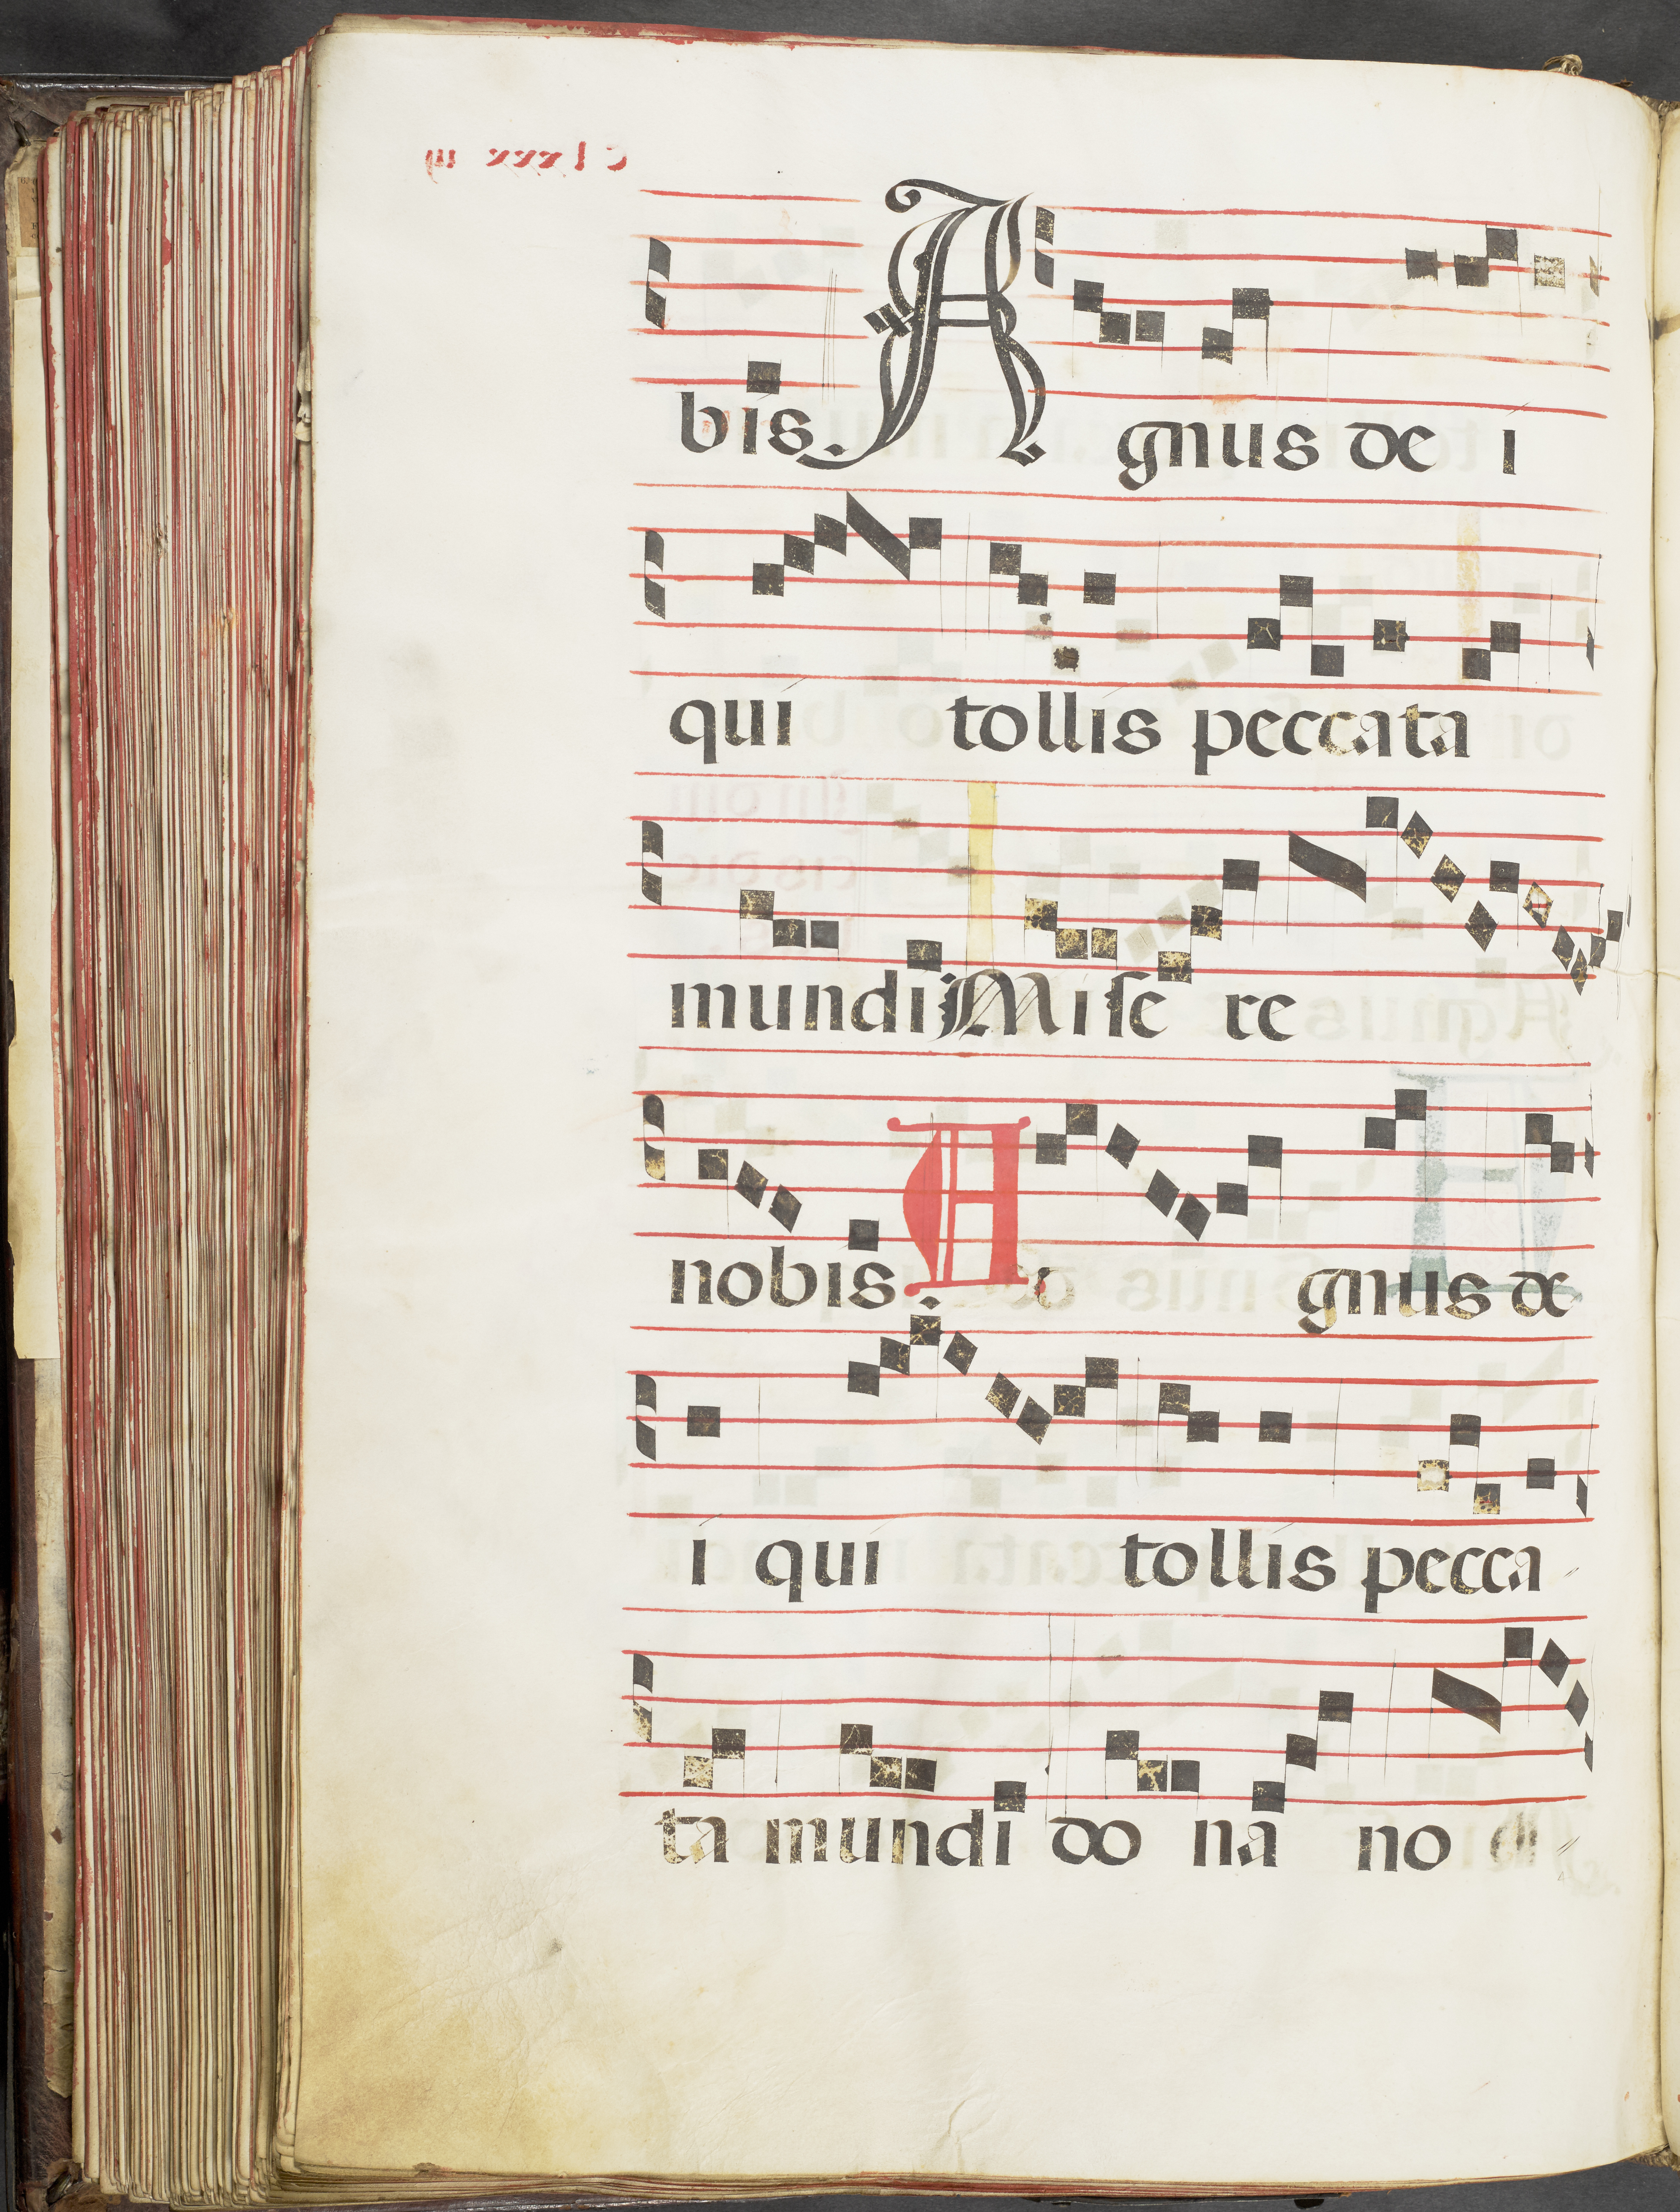 bis. Agnus de i
qui tollis peccata
mundi Miſe re
nobis. A gnus de
i qui tollis pecca
ta mundi do na no